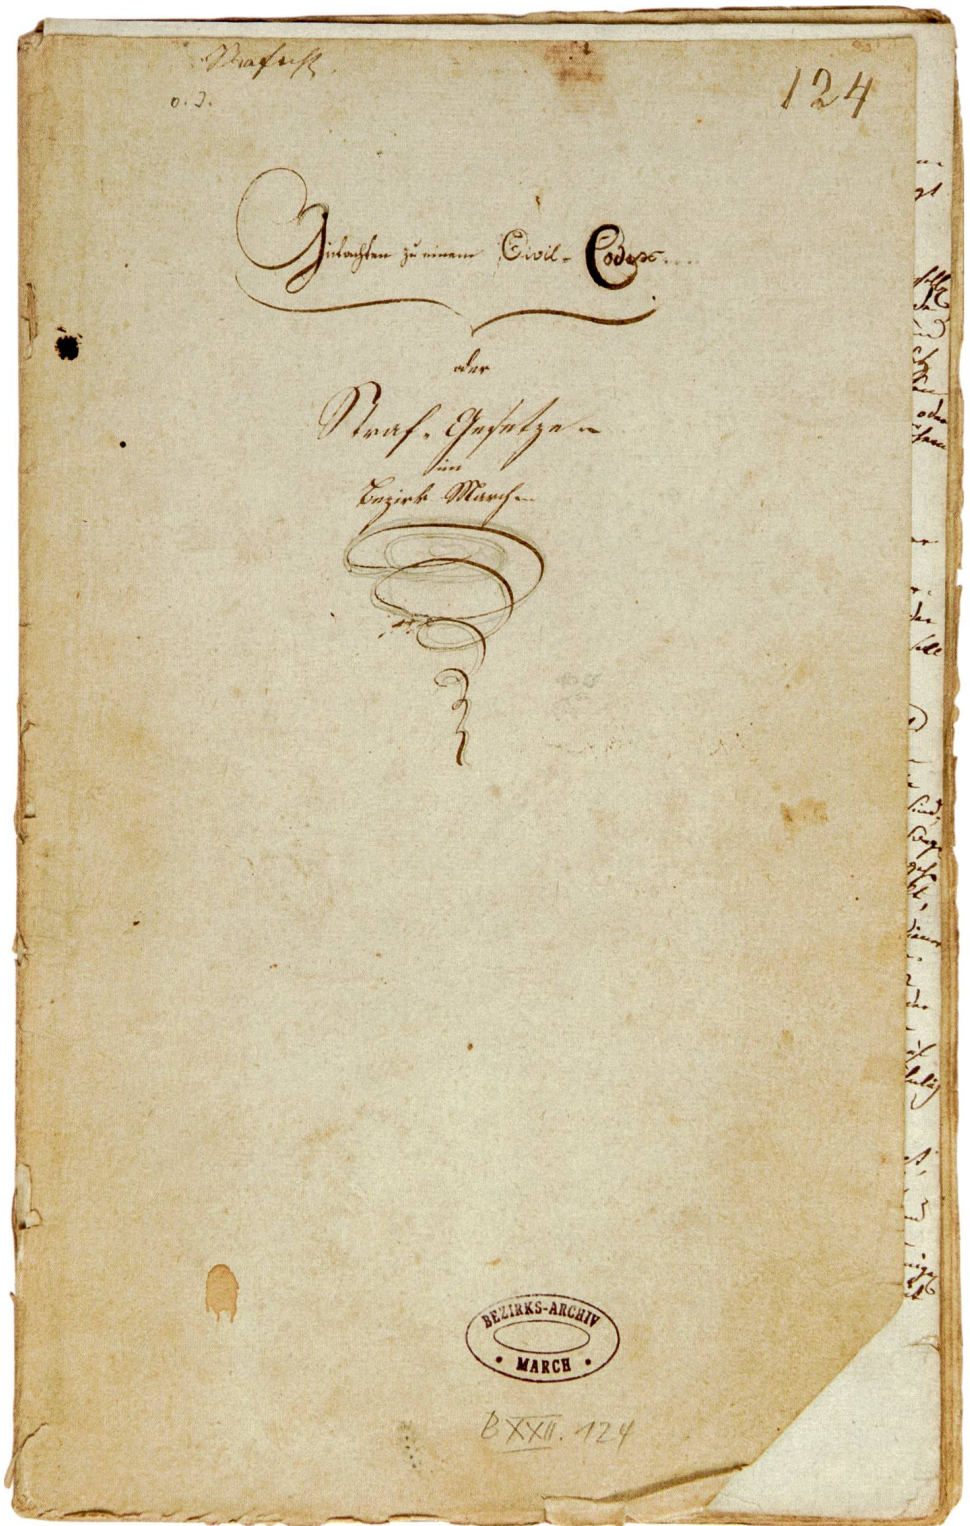 Strafrecht.
o. J.
124
Gutachten zu einem Civil-Codex
oder
Straf-Gesetze
im
Bezirk March
BEZIRKS-ARCHIV
MARCH
B XXII. 124
oder